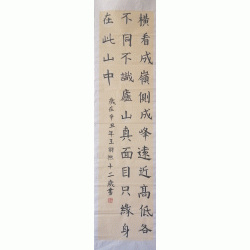 橫看成嶺側成峰遠近高低各
不同不識廬山真面目只緣身
在此山中
歲在辛丑年王十二歲書